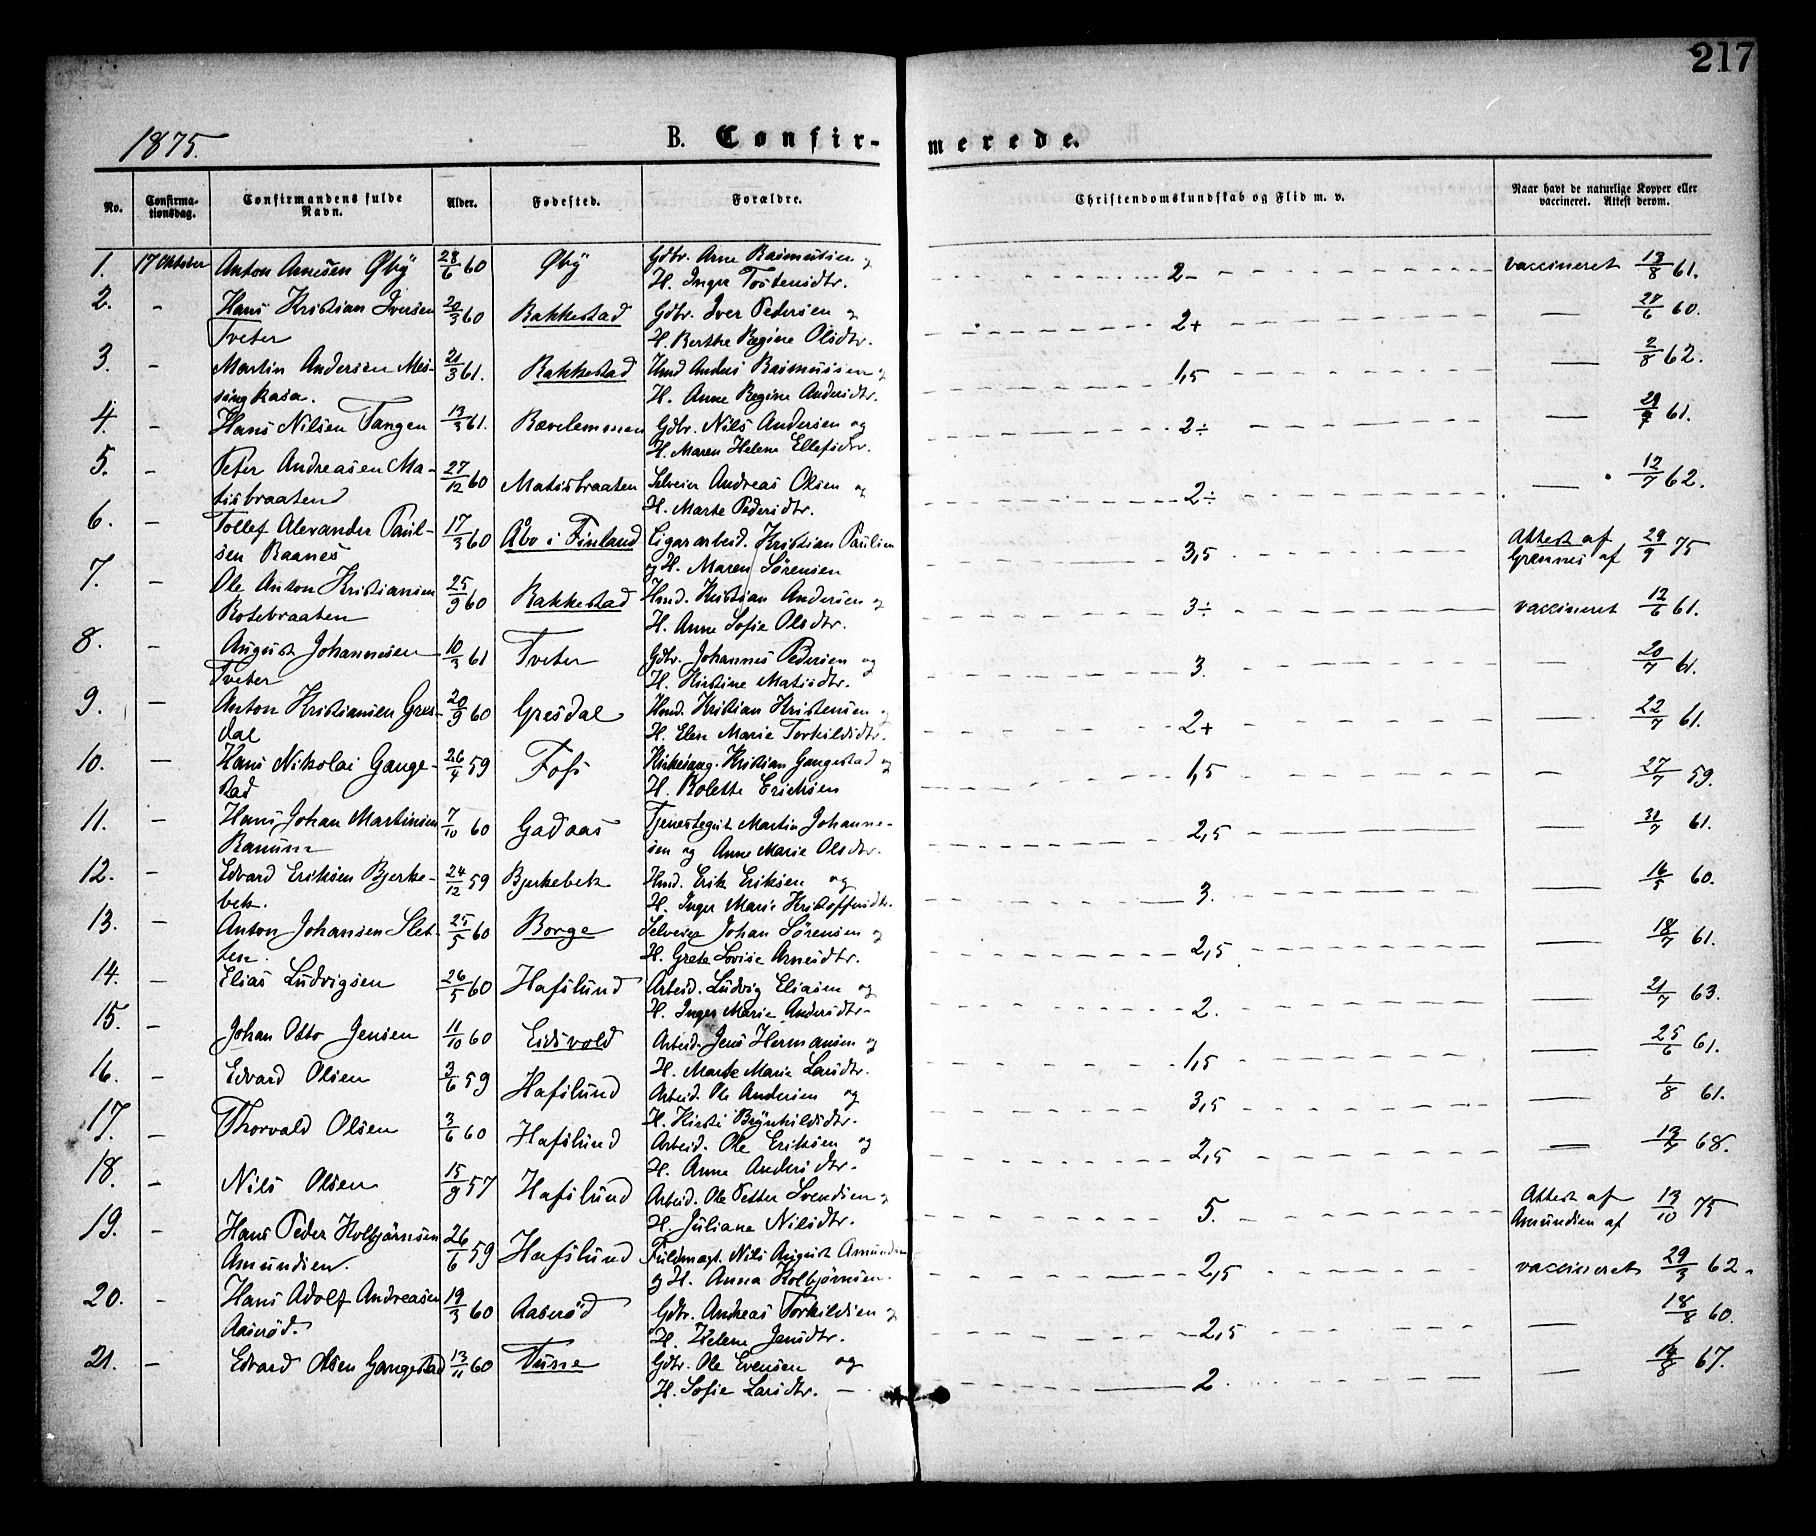 217
1875.
B. Confir-
merede.
No.
Confirma-
tionsdag.
Confirmandens fulde
Navn.
Alder.
Fødested.
Forældre.
Christendomskundskab og Flid m. v.
Naar havt de naturlige Kopper eller
vaccineret. Attest derom.
1. 17 Oktober Anton Arnesen Øby 28/6 60 Øby Gdbr. Arne Rasmussen og 2- vaccineret 13/8 61.
H. Inger Tostensdtr.
2. - Hans Kristian Iversen 20/3 60 Rakkestad Gdbr. Iver Pedersen og 2+ — 28/6 60.
Tveter H. Berthe Regine Olsdtr.
3. - Martin Andersen Mes- 21/3 61. Rakkestad Hmd Anders Rasmussen og 1,5 — 2/8 62.
singkasa. H. Anne Regine Andersdtr.
4. - Hans Nilsen Tangen 13/3 61. Rævelemmen Gdbr. Nils Andersen og 2÷ — 61.
H. Maren Helene Ellefsdtr.
5. - Peter Andreasen Ma- 27/12 60 Matisbraaten Selveier Andreas Olsen og 2÷ — 12/7 62.
tisbraaten H. Marte Pedersdtr.
6. - Tollef Alexander Paul- 17/3 60 Åbo i Finland Cigararbeid. Kristian Paulsen 3,5 Attest af 29/9 75
sen Raanes og H. Maren Sørensen Grønnes af
7. - Ole Anton Kristiansen 25/9 60 Rakkestad Hmd. Kristian Andersen og 3÷ vaccineret 12/6 61.
Rotebraaten H. Anne Sofie Olsdtr.
8. - August Johannesen 10/3 61 Tveter Gdbr. Johannes Pedersen og 3. — 20/7 61.
Tveter H. Kirstine Matisdtr.
9. - Anton Kristiansen Gres- 20/9 60 Gresdal Hmd. Kristian Kristensen og 2+ — 22/7 61.
dal H. Elen Marie Torkildsdtr.
10. - Hans Nikolai Gange- 26/4 59 Foss Kirkesang. Kristian Gangestad og 1,5 — 27/7 59.
stad H. Bolette Ericksen
11. - Hans Johan Martinsen 7/10 60 Gadaas Tjenestegut Martin Johanne- 2,5 — 31/7 61.
Ramum sen og Anne Marie Olsdtr.
12. - Edvard Eriksen Bjerke- 24/12 59 Bjerkebek Hmd. Erik Eriksen og 3. — 16/5 60.
bek. H. Inger Marie Kristoffersdtr.
13. - Anton Johansen Slet- 25/5 60 Borge Selveier Johan Sørensen og 2,5 — 18/7 61.
ten. H. Grete Lovise Arnesdtr.
14. - Elias Ludvigsen 26/5 60 Hafslund Arbeid. Ludvig Eliasen og 2. — 21/7 63.
H. Inger Marie Andersdtr.
15. - Johan Otto Jensen 11/10 60 Eidsvold Arbeid. Jens Hermansen og 1,5 — 25/6 61.
H. Marte Marie Larsdtr.
16. - Edvard Olsen 3/6 59 Hafslund Arbeid. Ole Andersen og 3,5 — 1/8 61.
H. Kirsti Brynhildsdtr.
17. - Thorvald Olsen 3/6 60 Hafslund Arbeid. Ole Eriksen og 2,5 — 68.
H. Anne Andersdtr.
18. - Nils Olsen 15/9 57 Hafslund Arbeid. Ole Petter Svendsen og 5. Attest af 13/10 75
H. Juliane Nilsdtr. Amundsen af
19. - Hans Peder Kolbjørnsen 26/6 59 Hafslund Fuldmægt. Nils August Amundsen 2,5 vaccineret 29/3 62.
Amundsen. og H. Anna Kolbjørnsen.
20. - Hans Adolf Andreasen 19/3 60 Aaserød Gdbr. Andreas Torkildsen og 2,5 — 18/8 60.
Aaserød. H. Helene Jensdtr.
21. - Edvard Olsen Gangestad 13/11 60 Tune Gdbr. Ole Evensen og 2. — 14/8 67.
H. Sofie Larsdtr. —